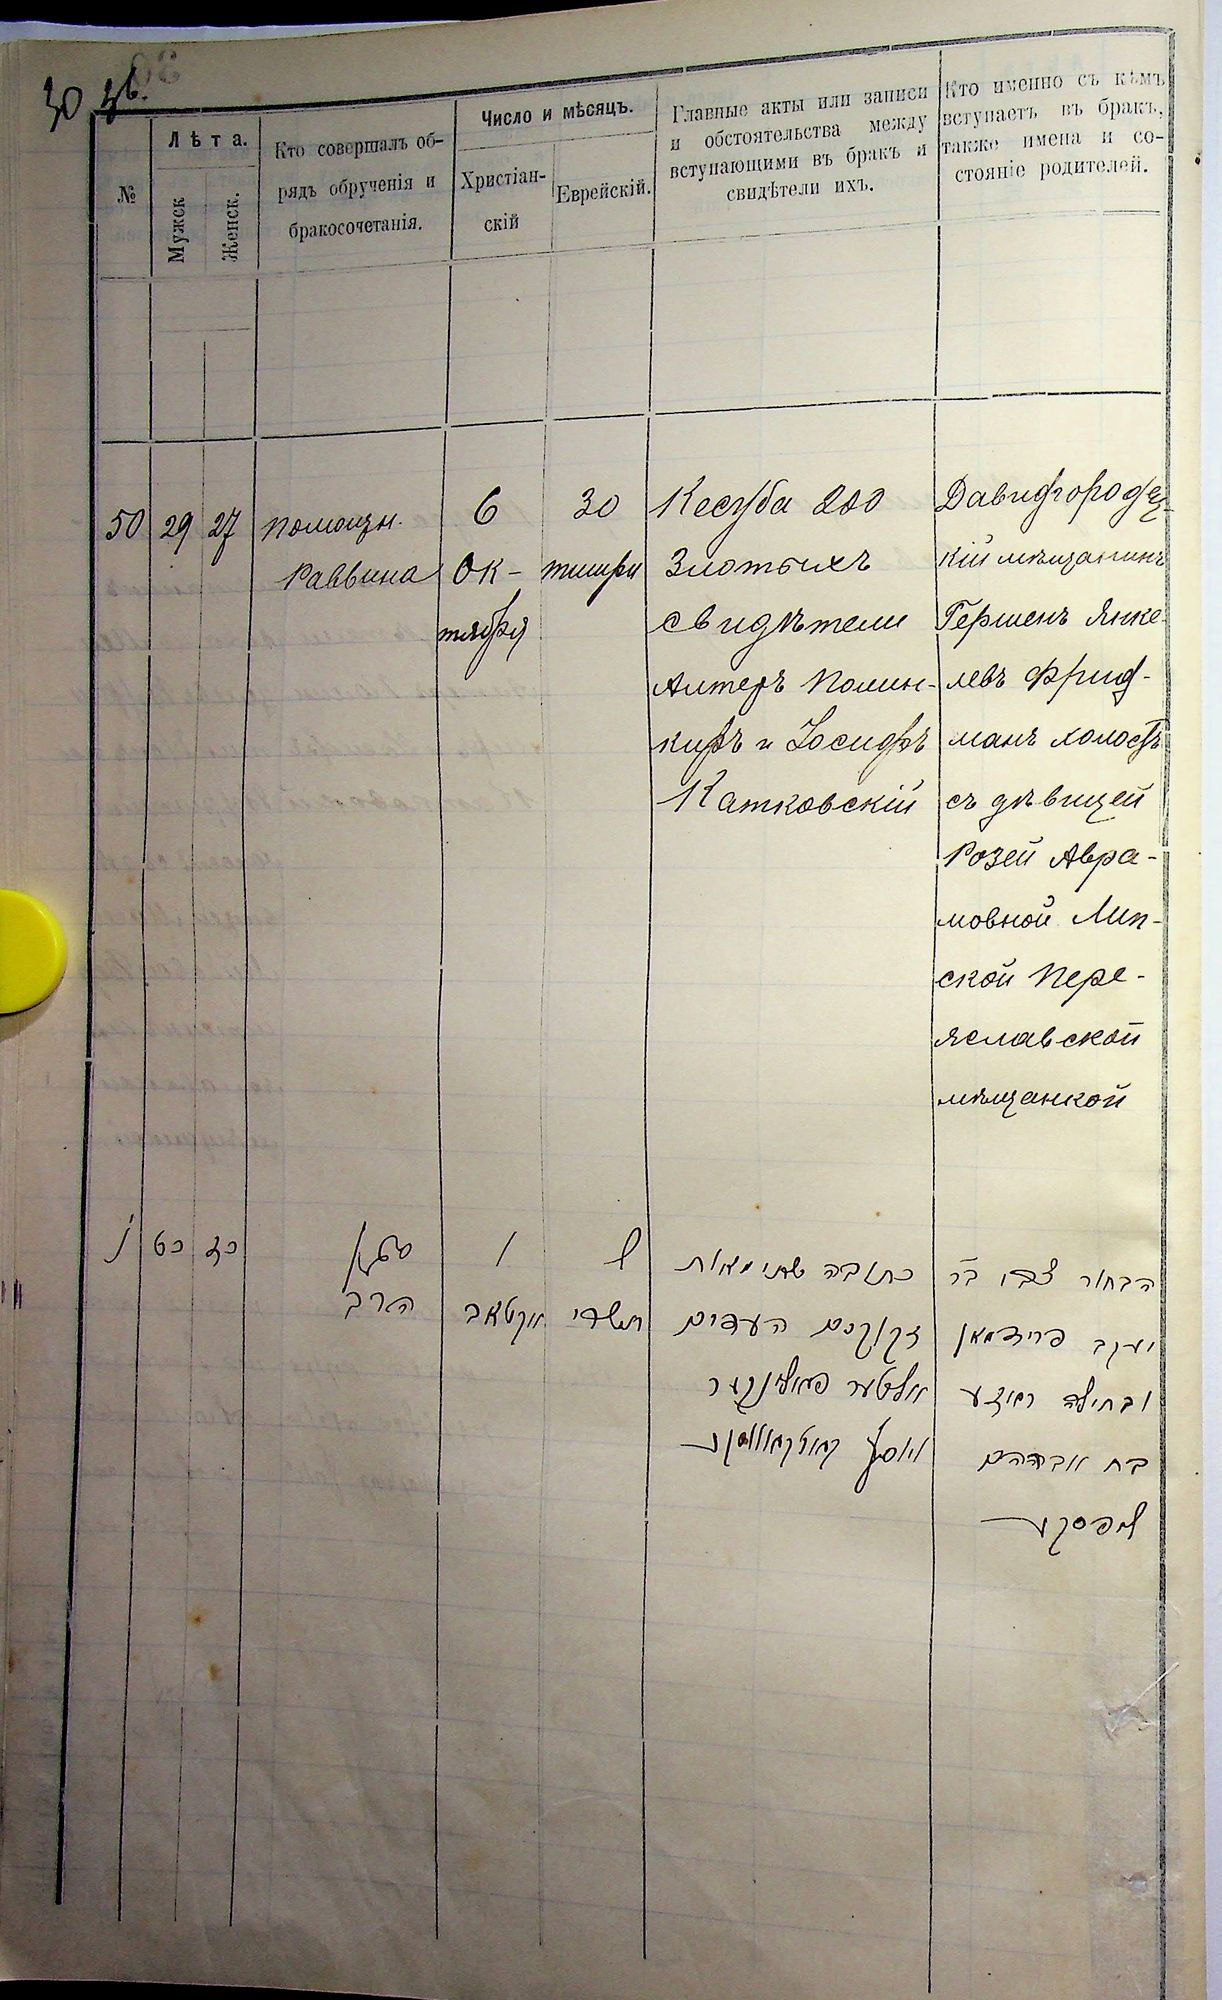 30 36.
№
Лѣта.
Мужск
Женск.
Кто совершалъ об-
рядъ обрученія и
бракосочетанія.
Число и мѣсяцъ.
Христіан-
скій
Еврейскій.
Главные акты или записи
и обстоятельства между
вступающими въ бракъ и
свидѣтели ихъ.
Кто именно съ кѣмъ
вступаетъ въ бракъ,
также имена и со-
стояніе родителей.
50
29
27
Помощн.
Раввина
6
Ок-
тября
30
тишри
Кесуба 200
Злотыхъ
свидѣтели
Алтеръ Полин-
керъ и Іосифъ
Катковскій
Давидгородец-
кій мѣщанинъ
Гершенъ Янке-
левъ Фрид-
манъ холостъ
съ дѣвицей
Розей Авра-
мовной Лип-
ской Пере-
яславской
мѣщанкой
נ
כט
כז
סגן
הרב
ו
אקטאב
ל
תשרי
כתובה שתי מאות
זקוקים העדים
אלטער פאלינקער
ויוסף קאטקאווסקי
הבחור צבי בר
יעקב פרידמאן
ובתולה רוזע
בת אברהם
ליפסקי